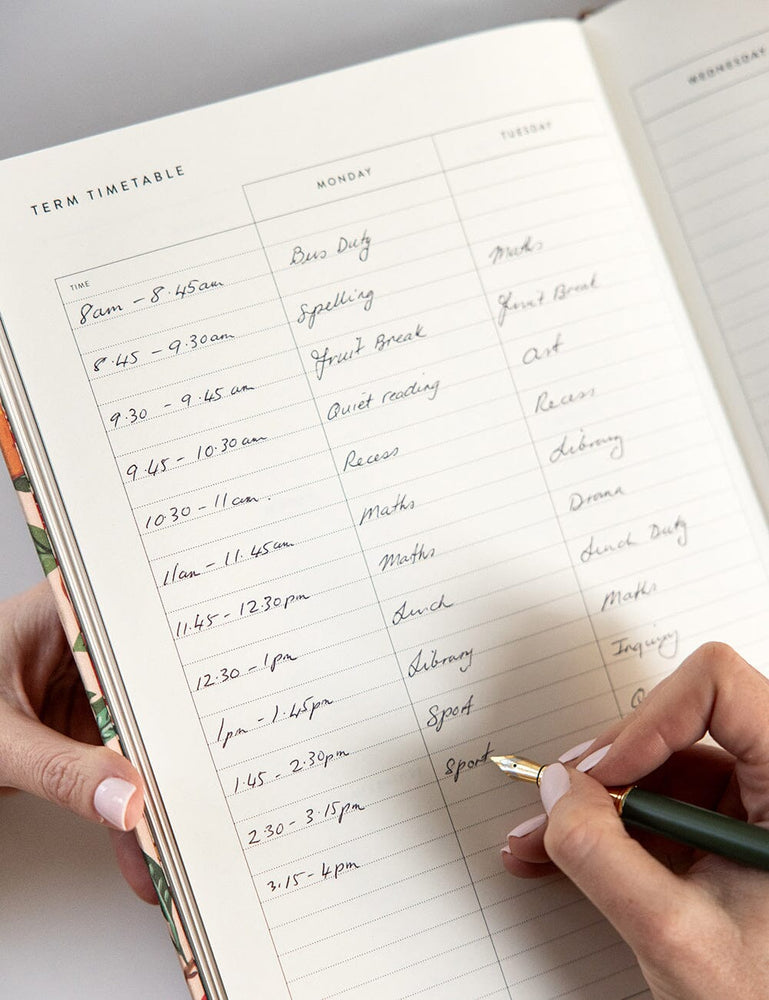 TERM TIMETABLE
TIME MONDAY TUESDAY WEDNESDAY
8am - 8.45am Bus Duty
8.45 - 9.30am Spelling Maths
9.30 - 9.45 am Fruit Break Fruit Break
9.45 - 10.30am Quiet reading Art
10.30 - 11am. Recess Recess
11am - 11.45am Maths Library
11.45 - 12.30pm Maths Drama
12.30 - 1pm Lunch Lunch Duty
1pm - 1.45pm Library Maths
1.45 - 2.30pm Sport Inquiry
2.30 - 3.15pm Sport
3.15 - 4pm